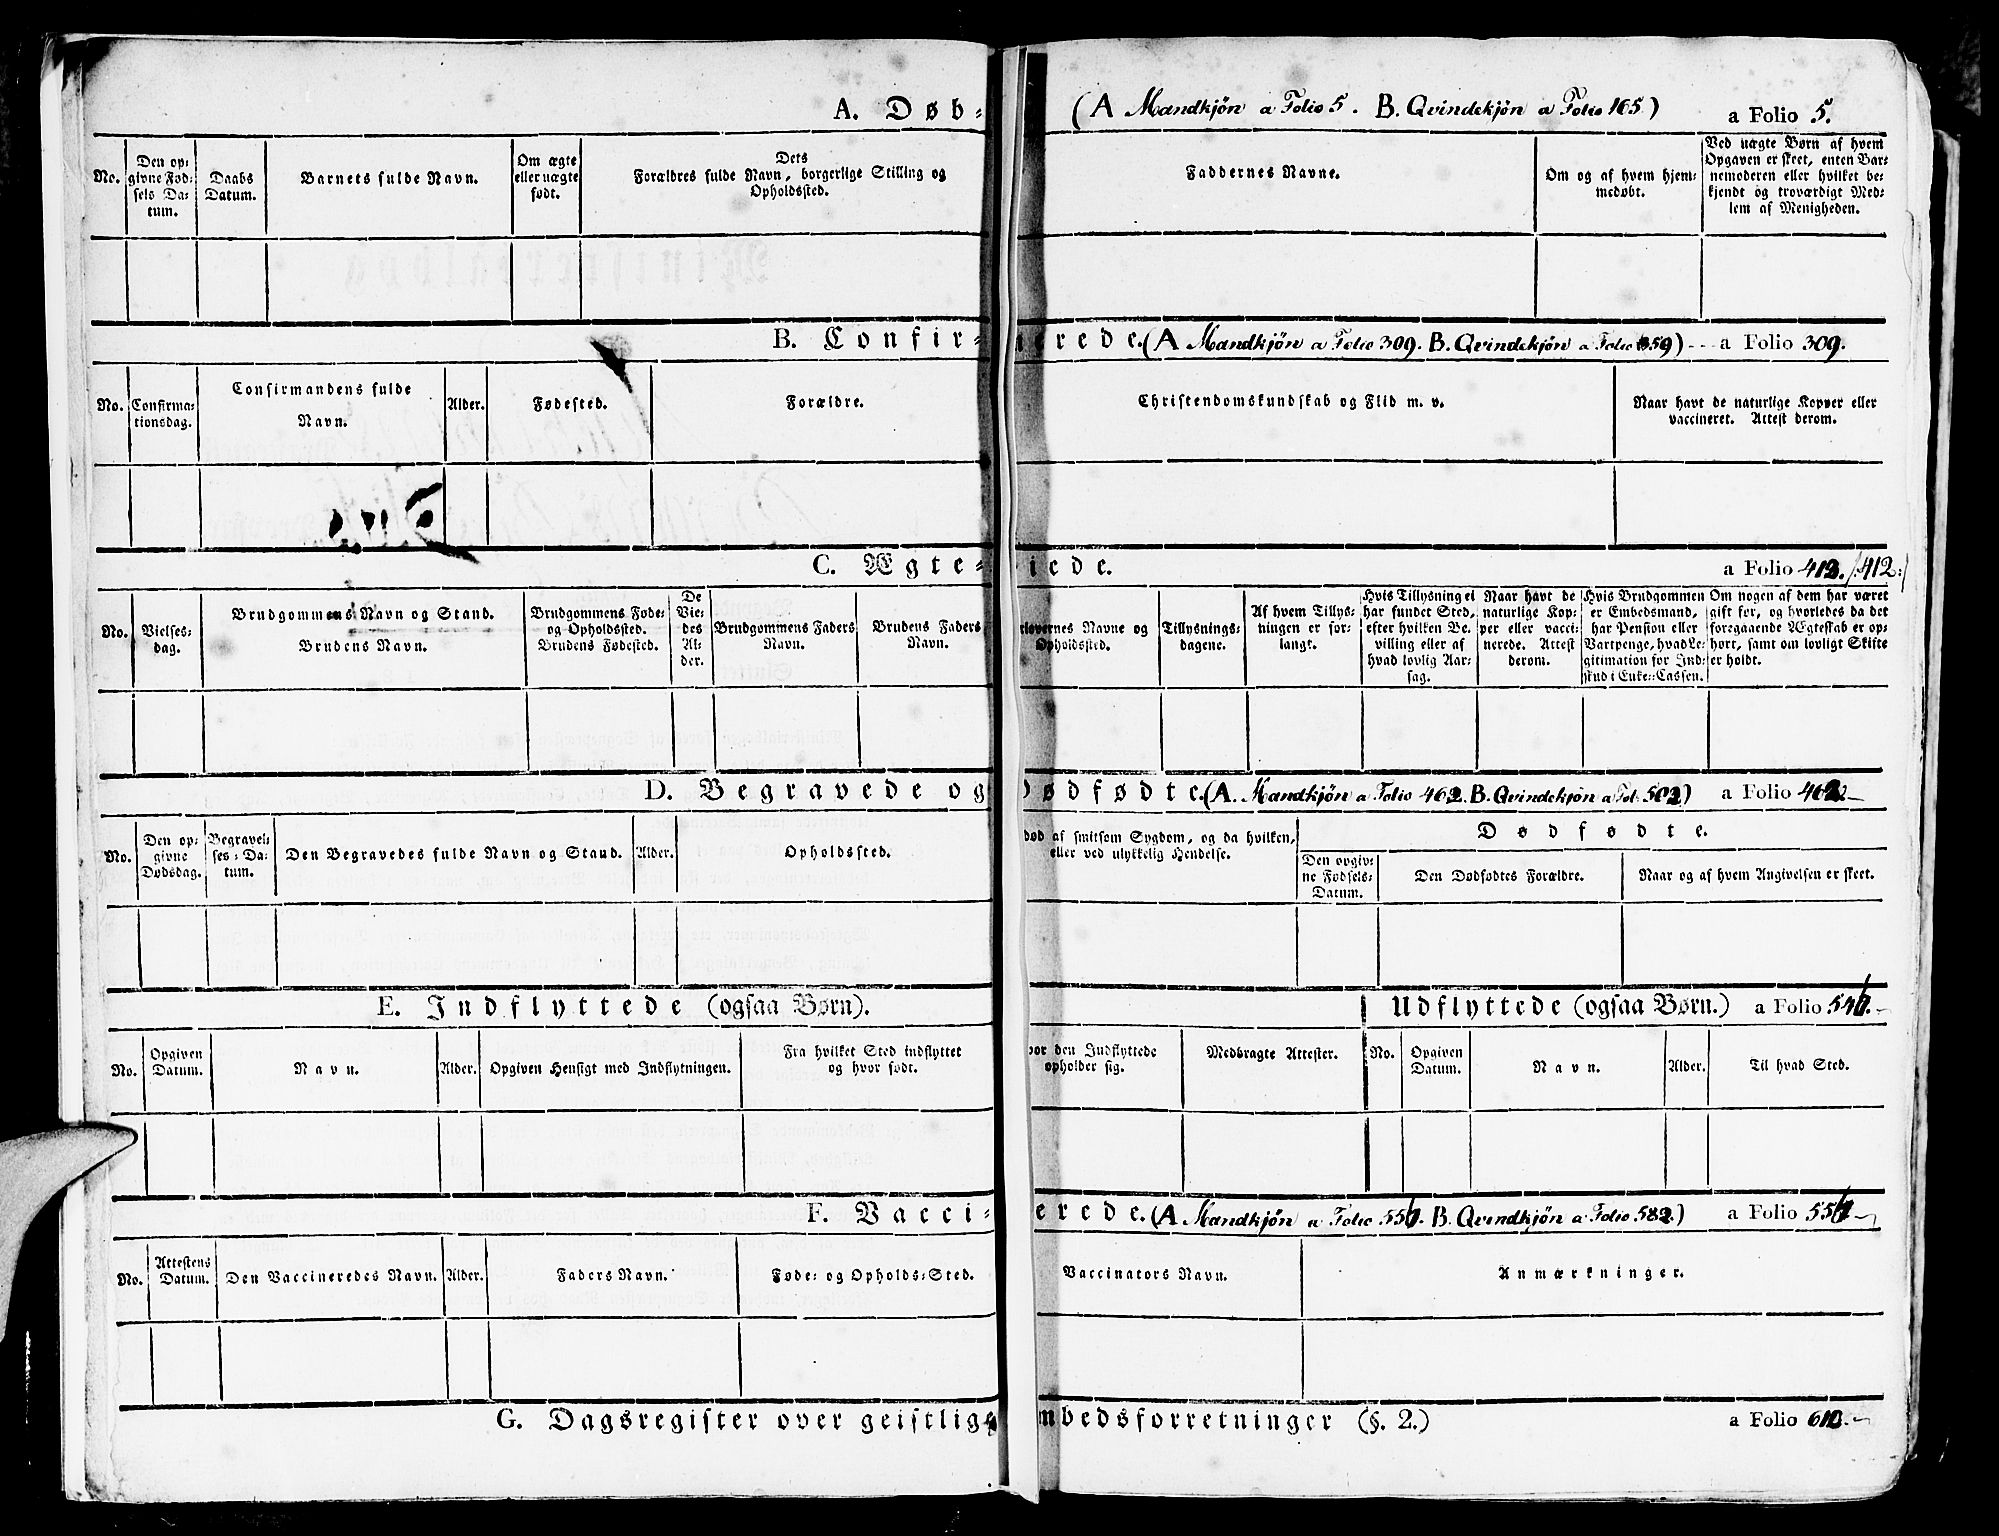 A. Døb- (A Mandkjön a Folio 5. B. Qvindekjön a Folio 165) a Folio 5.
No.
Den op-
givne Fød-
sels Da-
tum.
Daabs
Datum.
Barnets fulde Navn.
Om ægte
eller uægte
født.
Dets
Forældres fulde Navn, borgerlige Stilling og
Opholdssted.
Faddernes Navne.
Om og af hvem hjem-
medøbt.
Ved uægte Børn af hvem
Opgaven er skeet, enten Bar-
nemoderen eller hvilket be-
kjendt og troværdigt Med-
lem af Menigheden.
B. Confir- erede. (A Mandkjön a Folio 309. B. Qvindekjön a Folio 359) a Folio 309.
No.
Confirma-
tionsdag.
Confirmandens fulde
Navn.
Alder.
Fødested.
Forældre.
Christendomskundskab og Flid m. v.
Naar havt de naturlige Kopper eller
vaccineret. Attest derom.
C. Ægte- iede. a Folio 413. /:412:/
No.
Vielses-
dag.
Brudgommens Navn og Stand.
Brudens Navn.
Brudgommens Føde-
og Opholdssted.
Brudens Fødested.
De
Vie-
des
Al-
der.
Brudgommens Faders
Navn.
Brudens Faders
Navn.
lovernes Navne og
Opholdssted.
Tillysnings-
dagene.
Af hvem Tillys-
ningen er for-
langt.
Hvis Tillysning ei
har fundet Sted,
efter hvilken Be-
villing eller af
hvad lovlig Aar-
sag.
Naar havt de
naturlige Kop-
per eller vacci-
nerede. Attest
derom.
Hvis Brudgommen
er Embedsmand,
har Pension eller
Vartpenge, hvad Le-
gitimation for Ind-
skud i Enke-Cassen.
Om nogen af dem har været
gift før, og hvorledes da det
foregaaende Ægteskab er op-
hørt, samt om lovligt Skifte
er holdt.
D. Begravede og Dødfødte. (A. Mandkjön a Folio 462. B. Qvindekjön a Fol. 502) a Folio 462.
No.
Den op-
givne
Dødsdag.
Begravel-
ses-Da-
tum.
Den Begravedes fulde Navn og Stand.
Alder.
Opholdssted.
død af smitsom Sygdom, og da hvilken,
eller ved ulykkelig Hendelse.
Dødfødte.
Den opgiv-
ne Fødsels-
Datum.
Den Dødfødtes Forældre.
Naar og af hvem Angivelsen er skeet.
E. Indflyttede (ogsaa Børn). Udflyttede (ogsaa Børn.) a Folio
No.
Opgiven
Datum.
Navn.
Alder.
Opgiven Hensigt med Indflytningen.
Fra hvilket Sted indflyttet
og hvor født.
vor den Indflyttede
opholder sig.
Medbragte Attester.
No.
Opgiven
Datum.
Navn.
Alder.
Til hvad Sted.
F. Vacci- erede. (A Mandkjön a Folio B. Qvindkjön a Folio 582.) a Folio
No.
Attestens
Datum.
Den Vaccineredes Navn.
Alder.
Faders Navn.
Føde- og Opholds-Sted.
Vaccinators Navn.
Anmærkninger.
G. Dagsregister over geistlige mbedsforretninger (§. 2.) a Folio